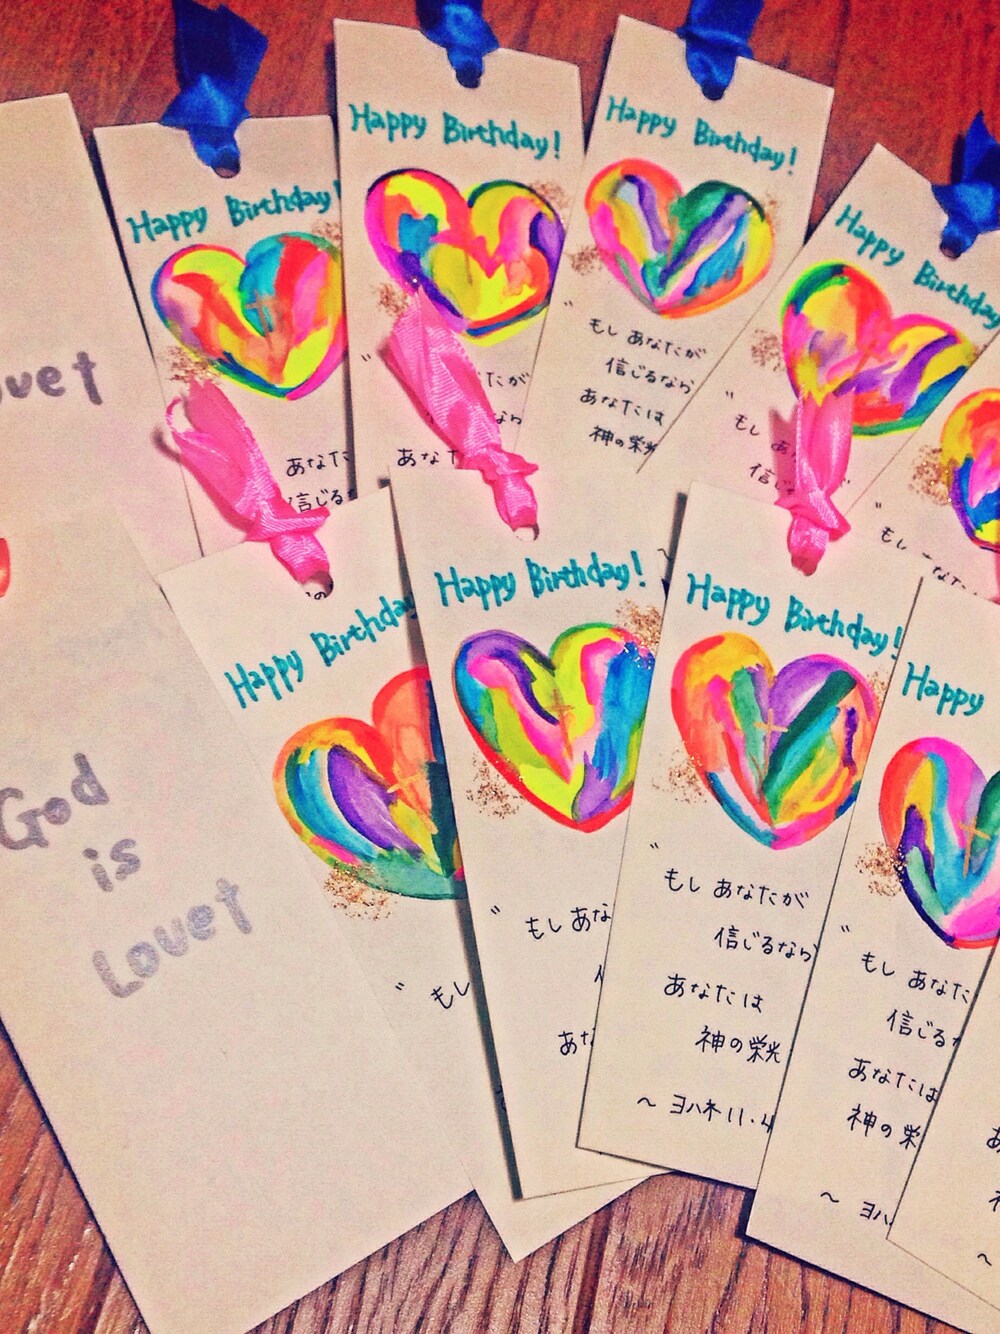 Happy Birthday!
Happy Birthday!
Happy Birthday!
Happy Birthday
ouet
"
たが
なら
あなた
"もし あなたが
信じるなら
あなたは
神の栄光
"もし あ
信じ
"もし
なた
あなた
信じる
Happy Birthday
Happy Birthday!
Happy Birthday!
Happy
God
is
Louet
"もし
"もし あな
あな
"もし あなたが
信じるなら
あなたは
神の栄光
~ ヨハネ11・4
"もし あなた
信じる
あなたは
神の栄
~ ヨハ
あ
~